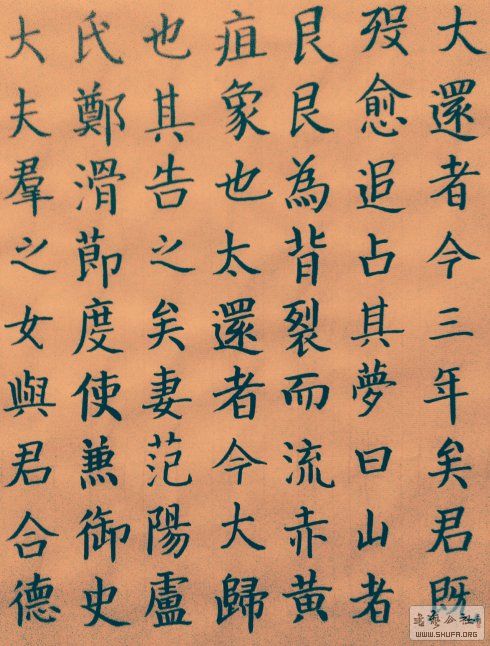 大還者今三年矣君既
歿愈追占其夢曰山者
艮艮為背裂而流赤黃
疽象也太還者今大歸
也其告之矣妻范陽盧
氏鄭滑節度使兼御史
大夫羣之女與君合德
WWW.SHUFA.ORG